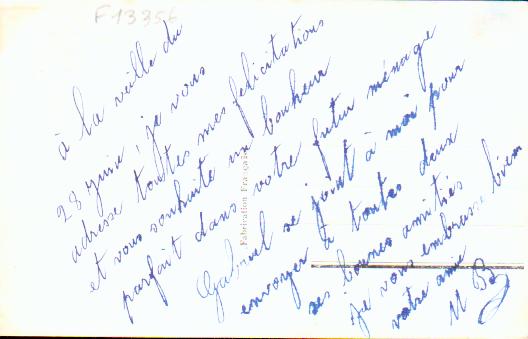 F13356
à la veille du
28 juin, je vous
adresse toutes mes félicitations
et vous souhaite un bonheur
parfait dans votre futur ménage
Gabriel se joint à moi pour
envoyer à toutes deux
ses bonnes amitiés
Je vous embrasse bien
votre amie
M B
Fabrication Française